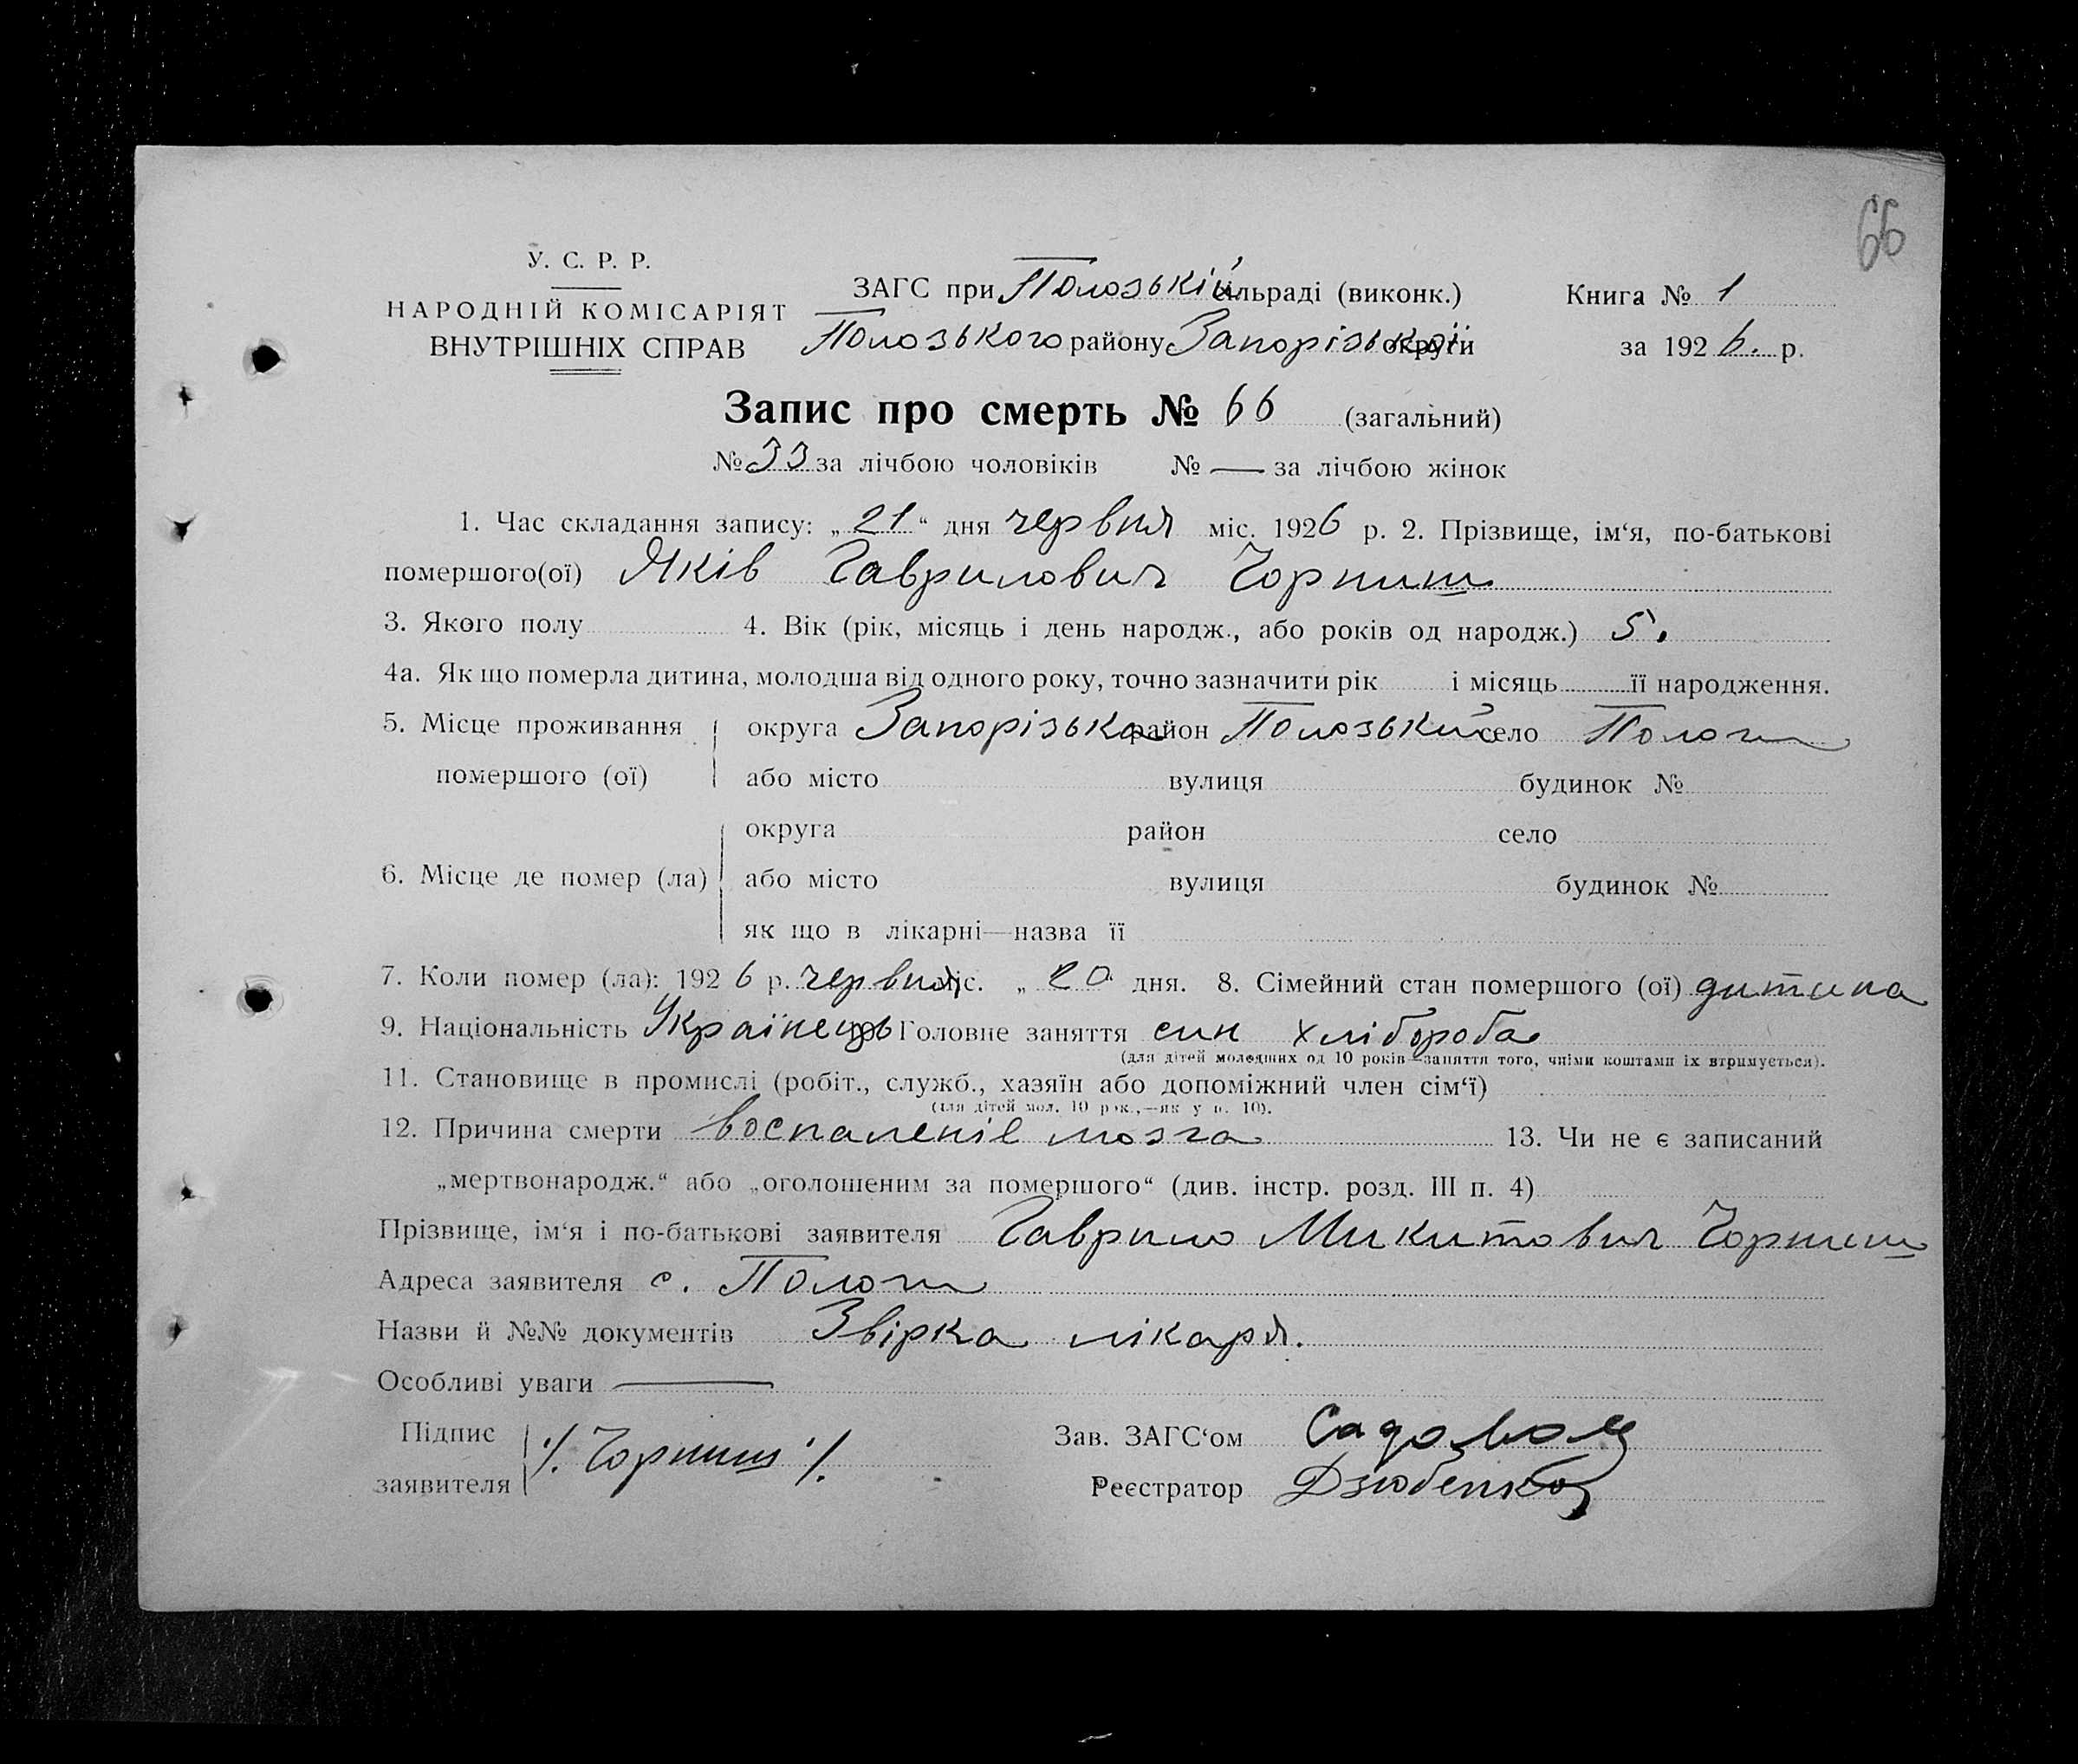 66
У. С. Р. Р.
НАРОДНІЙ КОМІСАРІЯТ
ВНУТРІШНІХ СПРАВ
ЗАГС при Полозькій сільраді (виконк.)
Полозького району Запорізькоі округи
Книга № 1
за 1926. р.
Запис про смерть № 66 (загальний)
№ 33 за лічбою чоловіків № — за лічбою жінок
1. Час складання запису: „21“ дня червня міс. 1926 р. 2. Прізвище, ім‘я, по-батькові
помершого(ої) Яків Гаврилович Чорниш
3. Якого полу 4. Вік (рік, місяць і день народж., або років од народж.) 5.
4а. Як що померла дитина, молодша від одного року, точно зазначити рік і місяць її народження.
5. Місце проживання округа Запорізька район Полозький село Пологи
помершого (ої) або місто вулиця будинок №
округа район село
6. Місце де помер (ла) або місто вулиця будинок №
як що в лікарні—назва її
7. Коли помер (ла): 1926 р. червня міс. „20 дня. 8. Сімейний стан помершого (ої) дитина
9. Національність Українець 10. Головне заняття син хлібороба
(для дітей молодших од 10 років—заняття того, чиїми коштами їх втримується).
11. Становище в промислі (робіт., служб., хазяїн або допоміжний член сім‘ї)
(для дітей мол. 10 рок.,—як у п. 10).
12. Причина смерти воспаленіе мозга 13. Чи не є записаний
„мертвонародж.“ або „оголошеним за помершого“ (див. інстр. розд. III п. 4)
Прізвище, ім‘я і по-батькові заявителя Гаврило Микитович Чорниш
Адреса заявителя с. Пологи
Назви й №№ документів Звірка лікаря.
Особливі уваги —
Підпис
заявителя ·/. Чорниш ·/.
Зав. ЗАГС‘ом Садовой
Реєстратор Дзюбенко